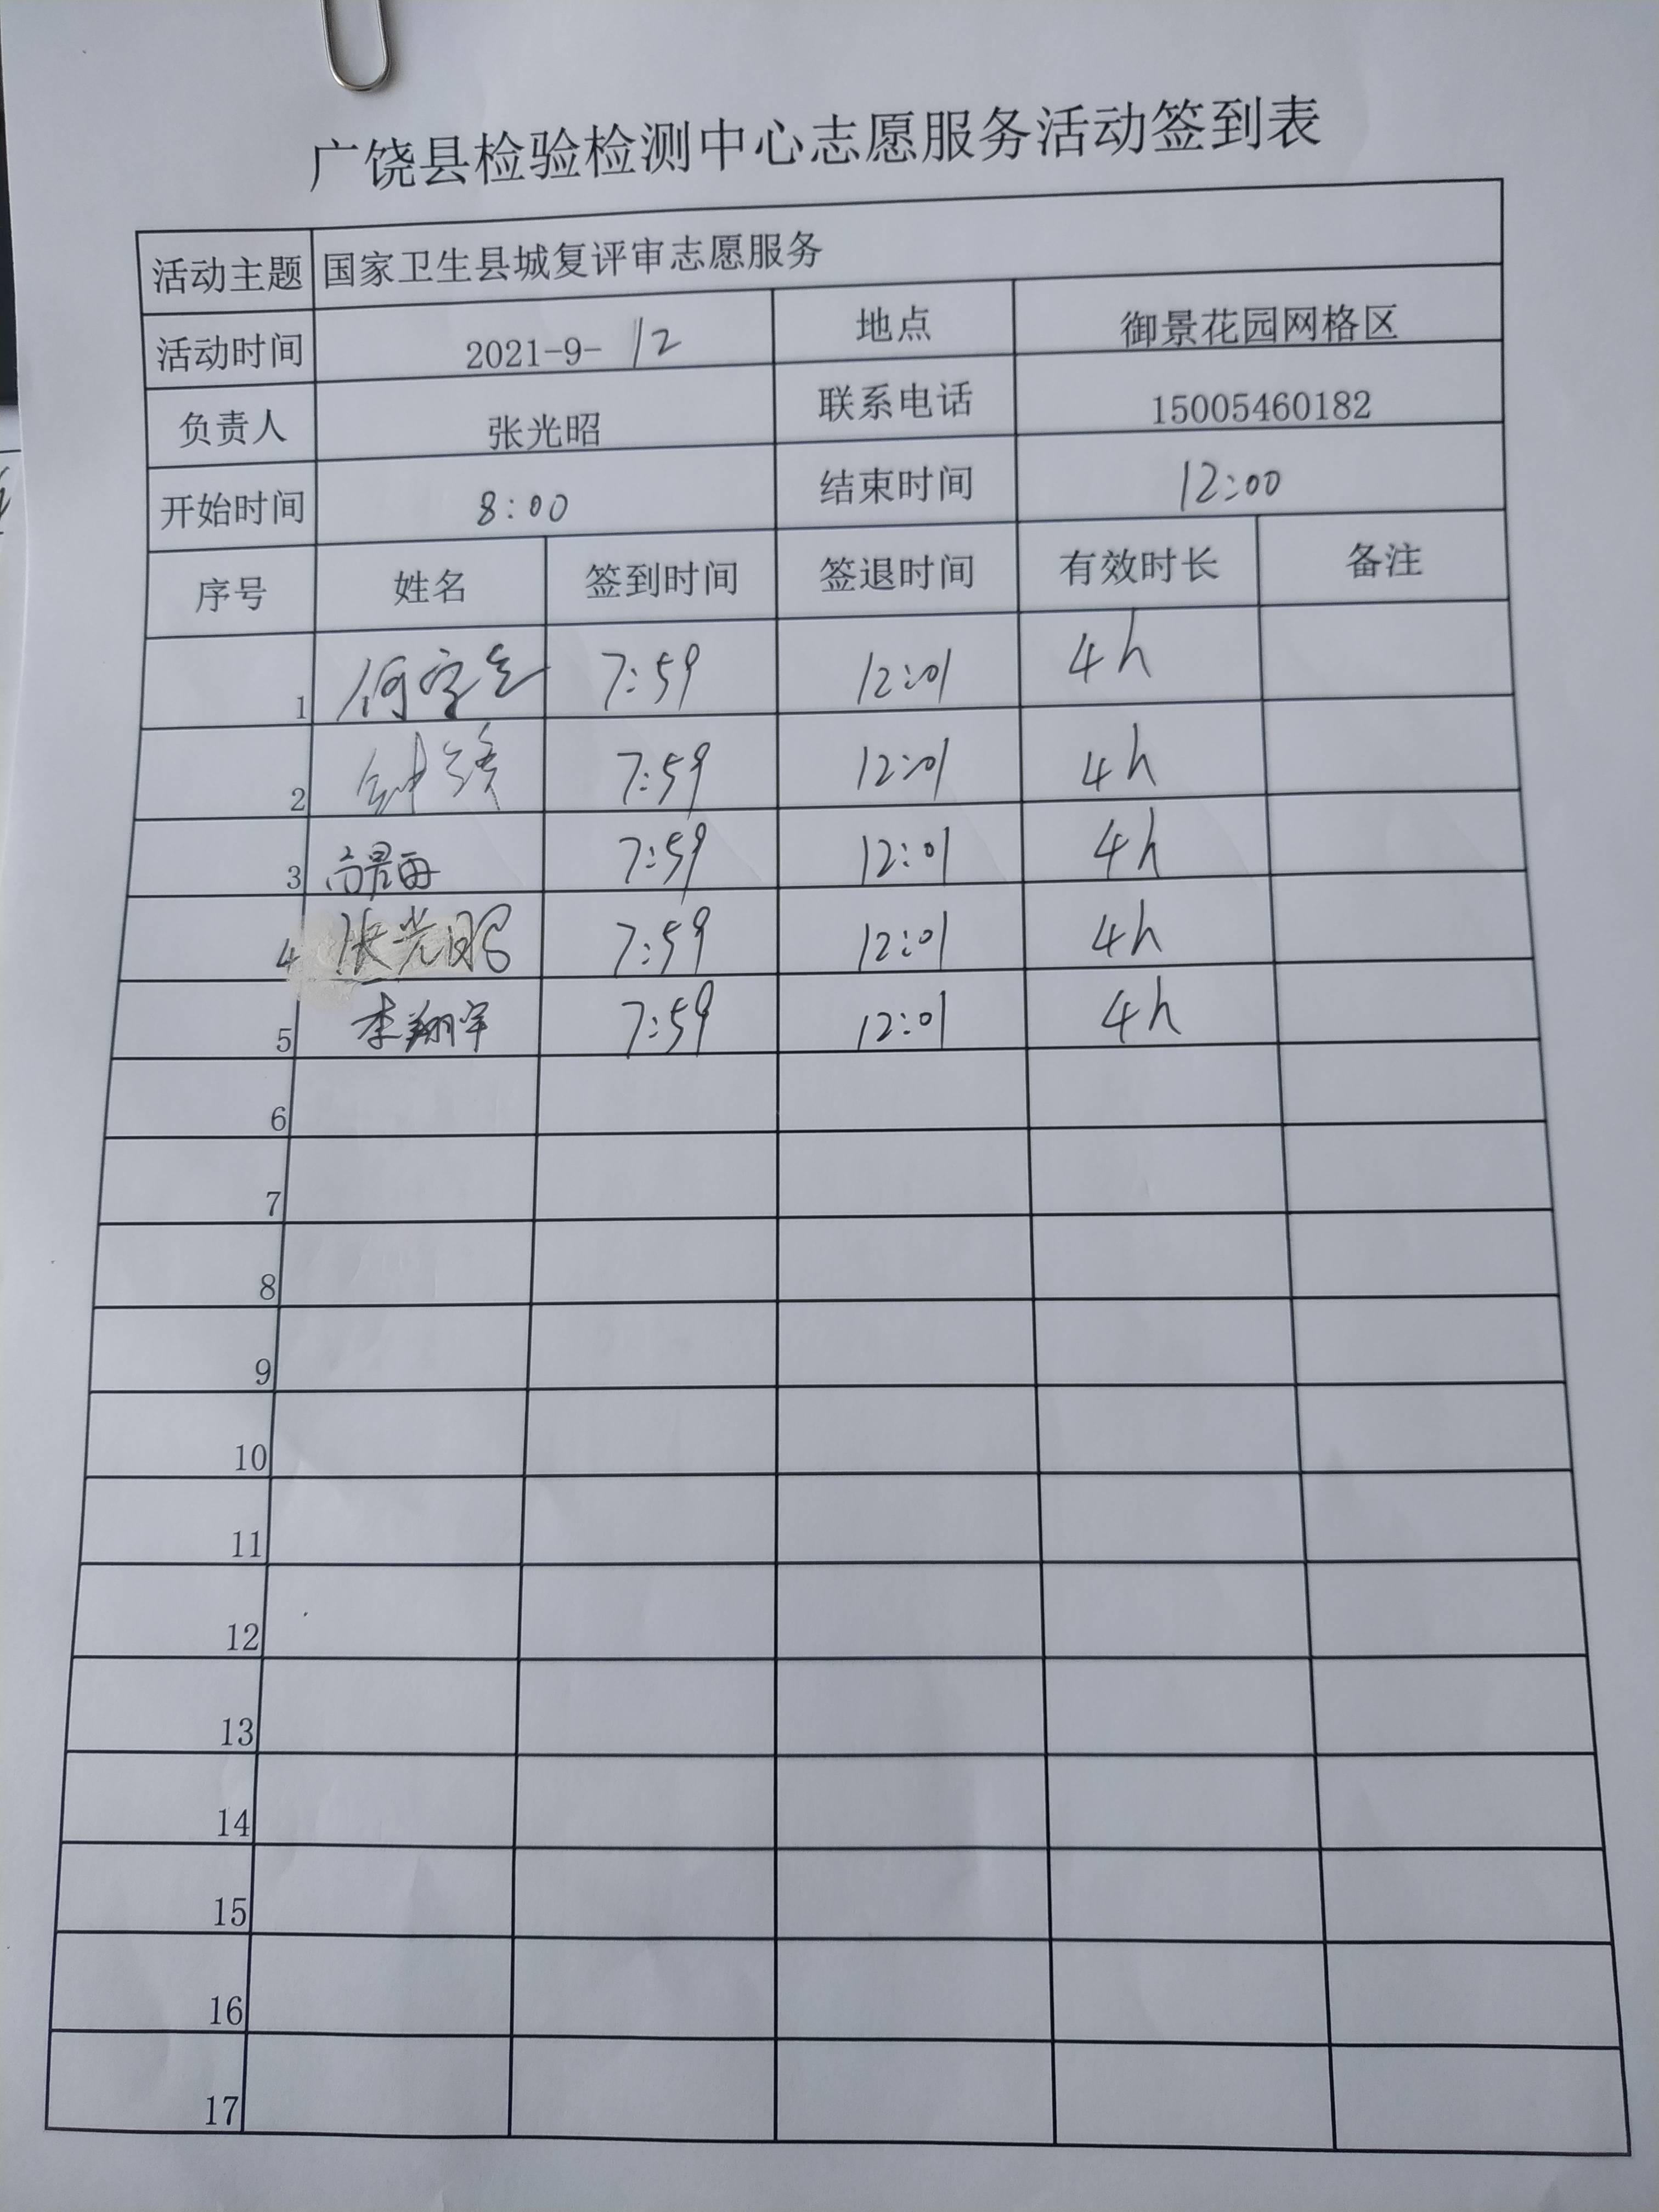 广饶县检验检测中心志愿服务活动签到表
活动主题 国家卫生县城复评审志愿服务
活动时间 2021-9-12 地点 御景花园网格区
负责人 张光昭 联系电话 15005460182
开始时间 8:00 结束时间 12:00
序号 姓名 签到时间 签退时间 有效时长 备注
1 7:59 12:01 4h
2 7:59 12:01 4h
3 7:59 12:01 4h
4 张光昭 7:59 12:01 4h
5 李翔宇 7:59 12:01 4h
6
7
8
9
10
11
12
13
14
15
16
17